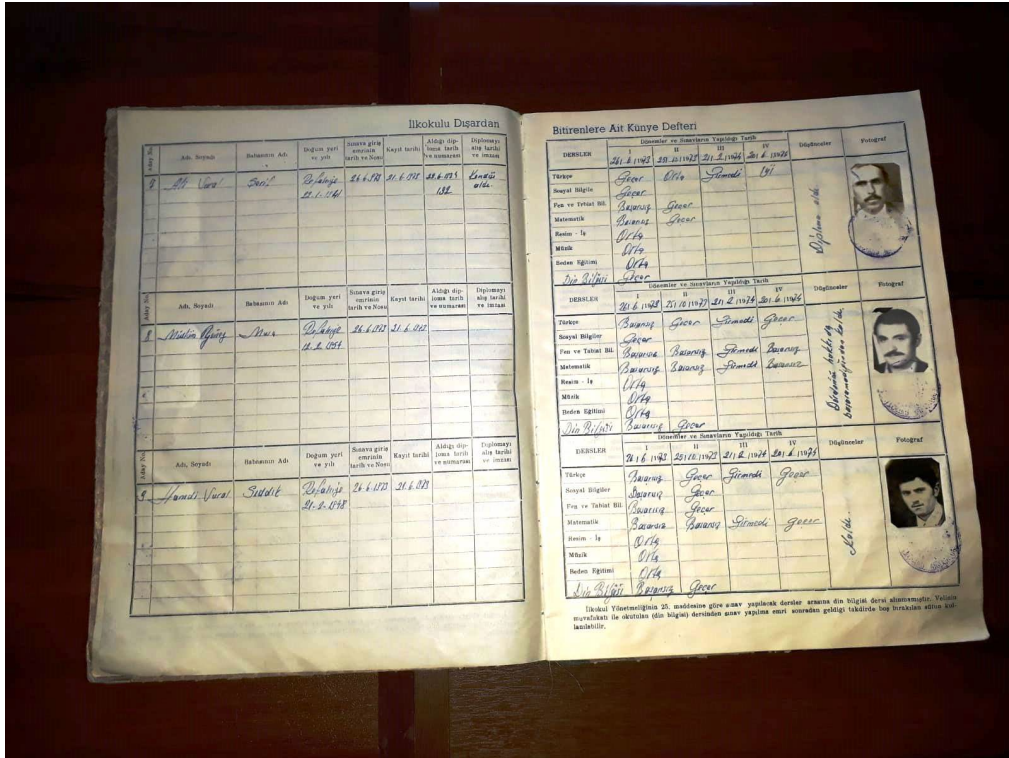 İlkokulu Dışardan
Aday No. Adı, Soyadı Babasının Adı Doğum yeri ve yılı Sınava giriş emrinin tarih ve Nosu Kayıt tarihi Aldığı diploma tarih ve numarası Diplomayı alış tarihi ve imzası
Ali Vural Şerif Refahiye 26.6.973 21.6.973
Kendisi aldı.
Aday No. Adı, Soyadı Babasının Adı Doğum yeri ve yılı Sınava giriş emrinin tarih ve Nosu Kayıt tarihi Aldığı diploma tarih ve numarası Diplomayı alış tarihi ve imzası
8 Refahiye 26.6.973 21.6.973
Aday No. Adı, Soyadı Babasının Adı Doğum yeri ve yılı Sınava giriş emrinin tarih ve Nosu Kayıt tarihi Aldığı diploma tarih ve numarası Diplomayı alış tarihi ve imzası
9 Hamdi Vural Sıddık Refahiye 26.6.973 21.6.973
Bitirenlere Ait Künye Defteri
Dönemler ve Sınavların Yapıldığı Tarih
DERSLER I II III IV Düşünceler Fotoğraf
Türkçe Geçer Orta Girmedi İyi
Sosyal Bilgiler Geçer
Fen ve Tabiat Bil. Başarısız Geçer
Matematik Başarısız Geçer
Resim - İş Orta
Müzik Orta
Beden Eğitimi Orta
Din Bilgisi Geçer
Diploma aldı.
Dönemler ve Sınavların Yapıldığı Tarih
DERSLER I II III IV Düşünceler Fotoğraf
Türkçe Başarısız Geçer Girmedi Geçer
Sosyal Bilgiler Geçer
Fen ve Tabiat Bil. Başarısız Başarısız Girmedi Başarısız
Matematik Başarısız Başarısız Girmedi Başarısız
Resim - İş Orta
Müzik Orta
Beden Eğitimi Orta
Din Bilgisi Başarısız Geçer
Dönemler ve Sınavların Yapıldığı Tarih
DERSLER I II III IV Düşünceler Fotoğraf
Türkçe Başarısız Geçer Girmedi Geçer
Sosyal Bilgiler Başarısız Geçer
Fen ve Tabiat Bil. Başarısız Geçer
Matematik Başarısız Başarısız Girmedi Geçer
Resim - İş Orta
Müzik Orta
Beden Eğitimi Orta
Din Bilgisi Başarısız Geçer
Kaldı.
İlkokul Yönetmeliğinin 25. maddesine göre sınav yapılacak dersler arasına din bilgisi dersi alınmamıştır. Velisin
muvafakatı ile okutulan (din bilgisi) dersinden sınav yapılma emri sonradan geldiği takdirde boş bırakılan sütun kul-
lanılabilir.